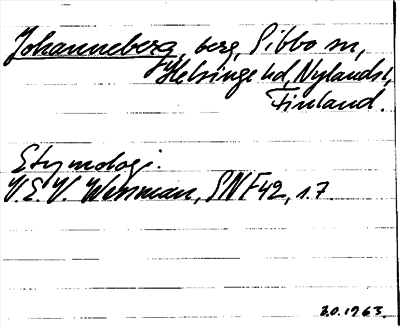 Johanneberg, berg, Sibbo sn,
Helsinge hd, Nylands l,
Finland.
Etymologi.
V.E.V. Wessman, SNF 42, s. 7.
30.1963.